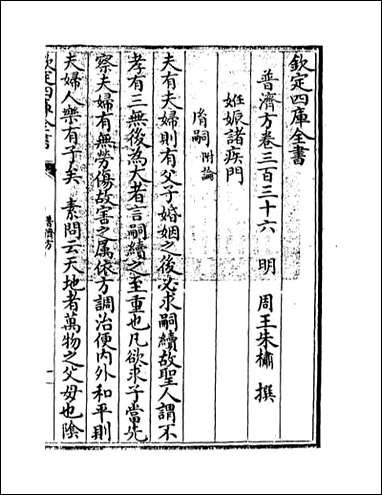 欽定四庫全書
普濟方卷三百三十六 明 周王朱橚 撰
妊娠諸疾門
脩嗣 附論
夫有夫婦則有父子婚姻之後必求嗣續故聖人謂不
孝有三無後為大者言嗣續之至重也凡欲求子當先
察夫婦有無勞傷故害之属依方調治便內外和平則
夫婦人樂有子矣 素問云天地者萬物之父母也陰
欽定四庫全書
普濟方
一